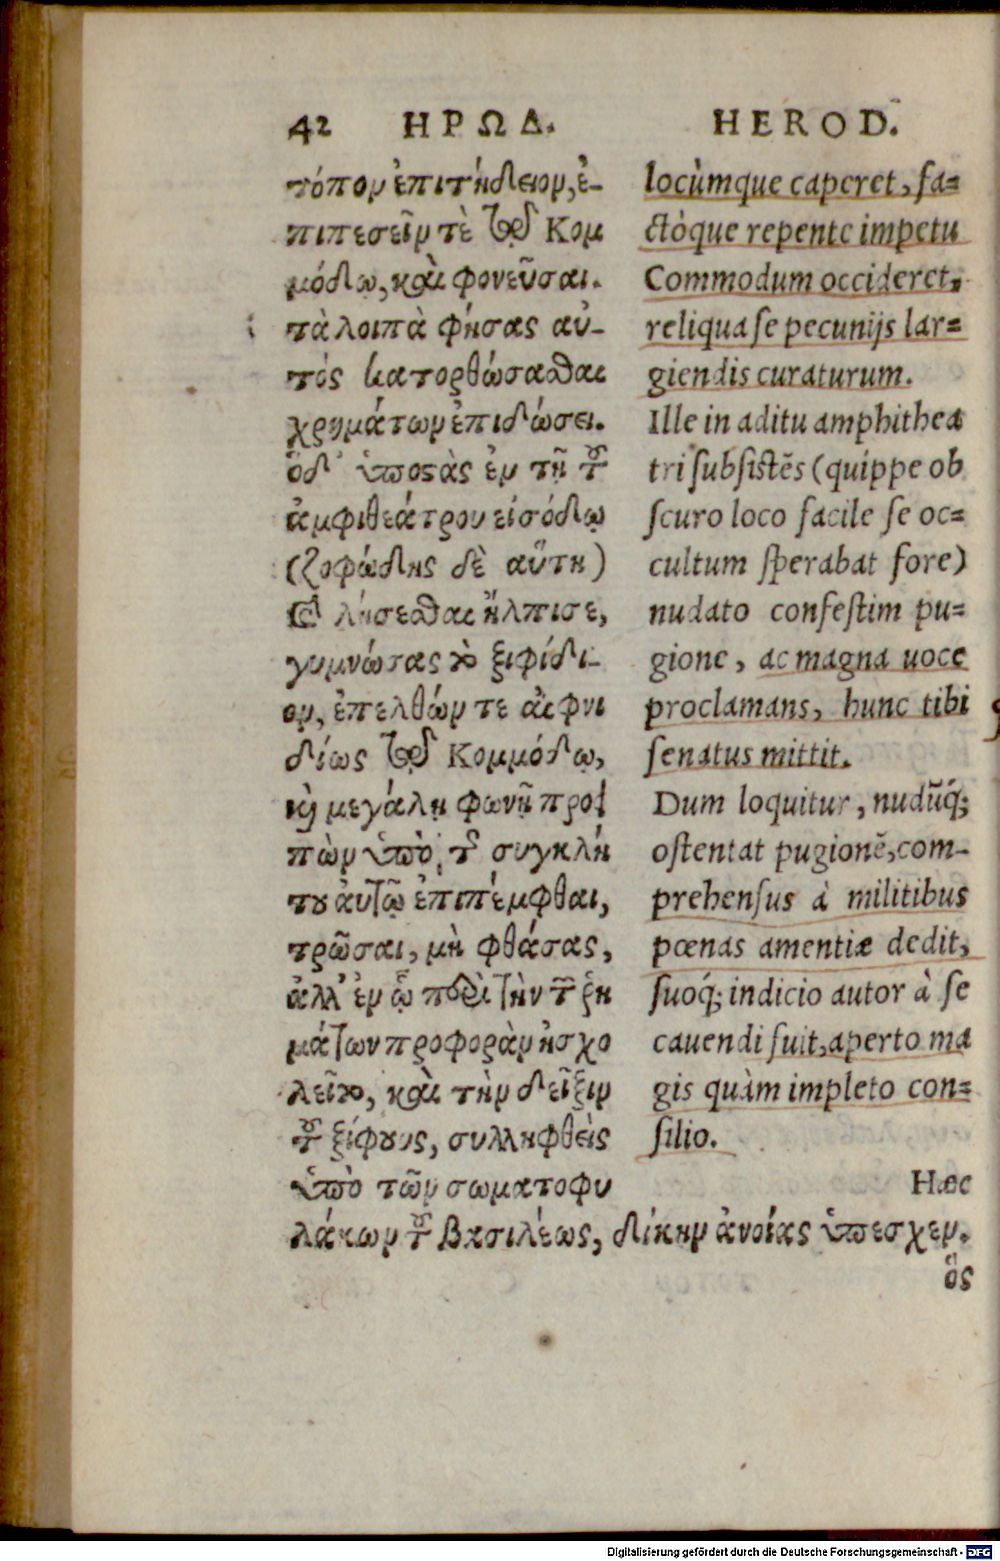 42 ΗΡΩΔ. HEROD.
τόπον ἐπιτήδειον, ἐ-
πιπεσεῖν τὲ τῷ Κομ
μόδῳ, καὶ φονεῦσαι.
τὰ λοιπὰ φήσας αὐ-
τὸς κατορθώσασθαι
χρημάτων ἐπιδώσει.
ὁδ' ὑποστὰς ἐν τῇ τοῦ
ἀμφιθεάτρου εἰσόδῳ
(ζοφώδης δὲ αὕτη)
λήσεσθαι ἤλπισε,
γυμνώσας τὸ ξιφίδι-
ον, ἐπελθών τε αἰφνι
δίως τῷ Κομμόδῳ,
καὶ μεγάλῃ φωνῇ προει
πὼν ὑπὸ τῆς συγκλή
του αὐτῷ ἐπιπέμφθαι,
τρῶσαι, μὴ φθάσας,
ἀλλ' ἐν ᾧ περὶ τὴν τῶν ῥη
μάτων προφορὰν ἠσχο
λεῖτο, καὶ τὴν δεῖξιν
τοῦ ξίφους, συλληφθεὶς
ὑπὸ τῶν σωματοφυ
λάκων τοῦ βασιλέως, δίκην ἀνοίας ὑπέσχεν.
ὃς
locùmque caperet, fa=
ctòque repente impetu
Commodum occideret,
reliqua se pecunijs lar=
giendis curaturum.
Ille in aditu amphithea
tri subsistẽs (quippe ob
scuro loco facile se oc=
cultum sperabat fore)
nudato confestim pu=
gione, ac magna uoce
proclamans, hunc tibi
senatus mittit.
Dum loquitur, nudũq́;
ostentat pugionẽ, com-
prehensus à militibus
pœnas amentiæ dedit,
suoq́; indicio autor à se
cauendi fuit, aperto ma
gis quàm impleto con=
silio.
Hæc
Digitalisierung gefördert durch die Deutsche Forschungsgemeinschaft - DFG